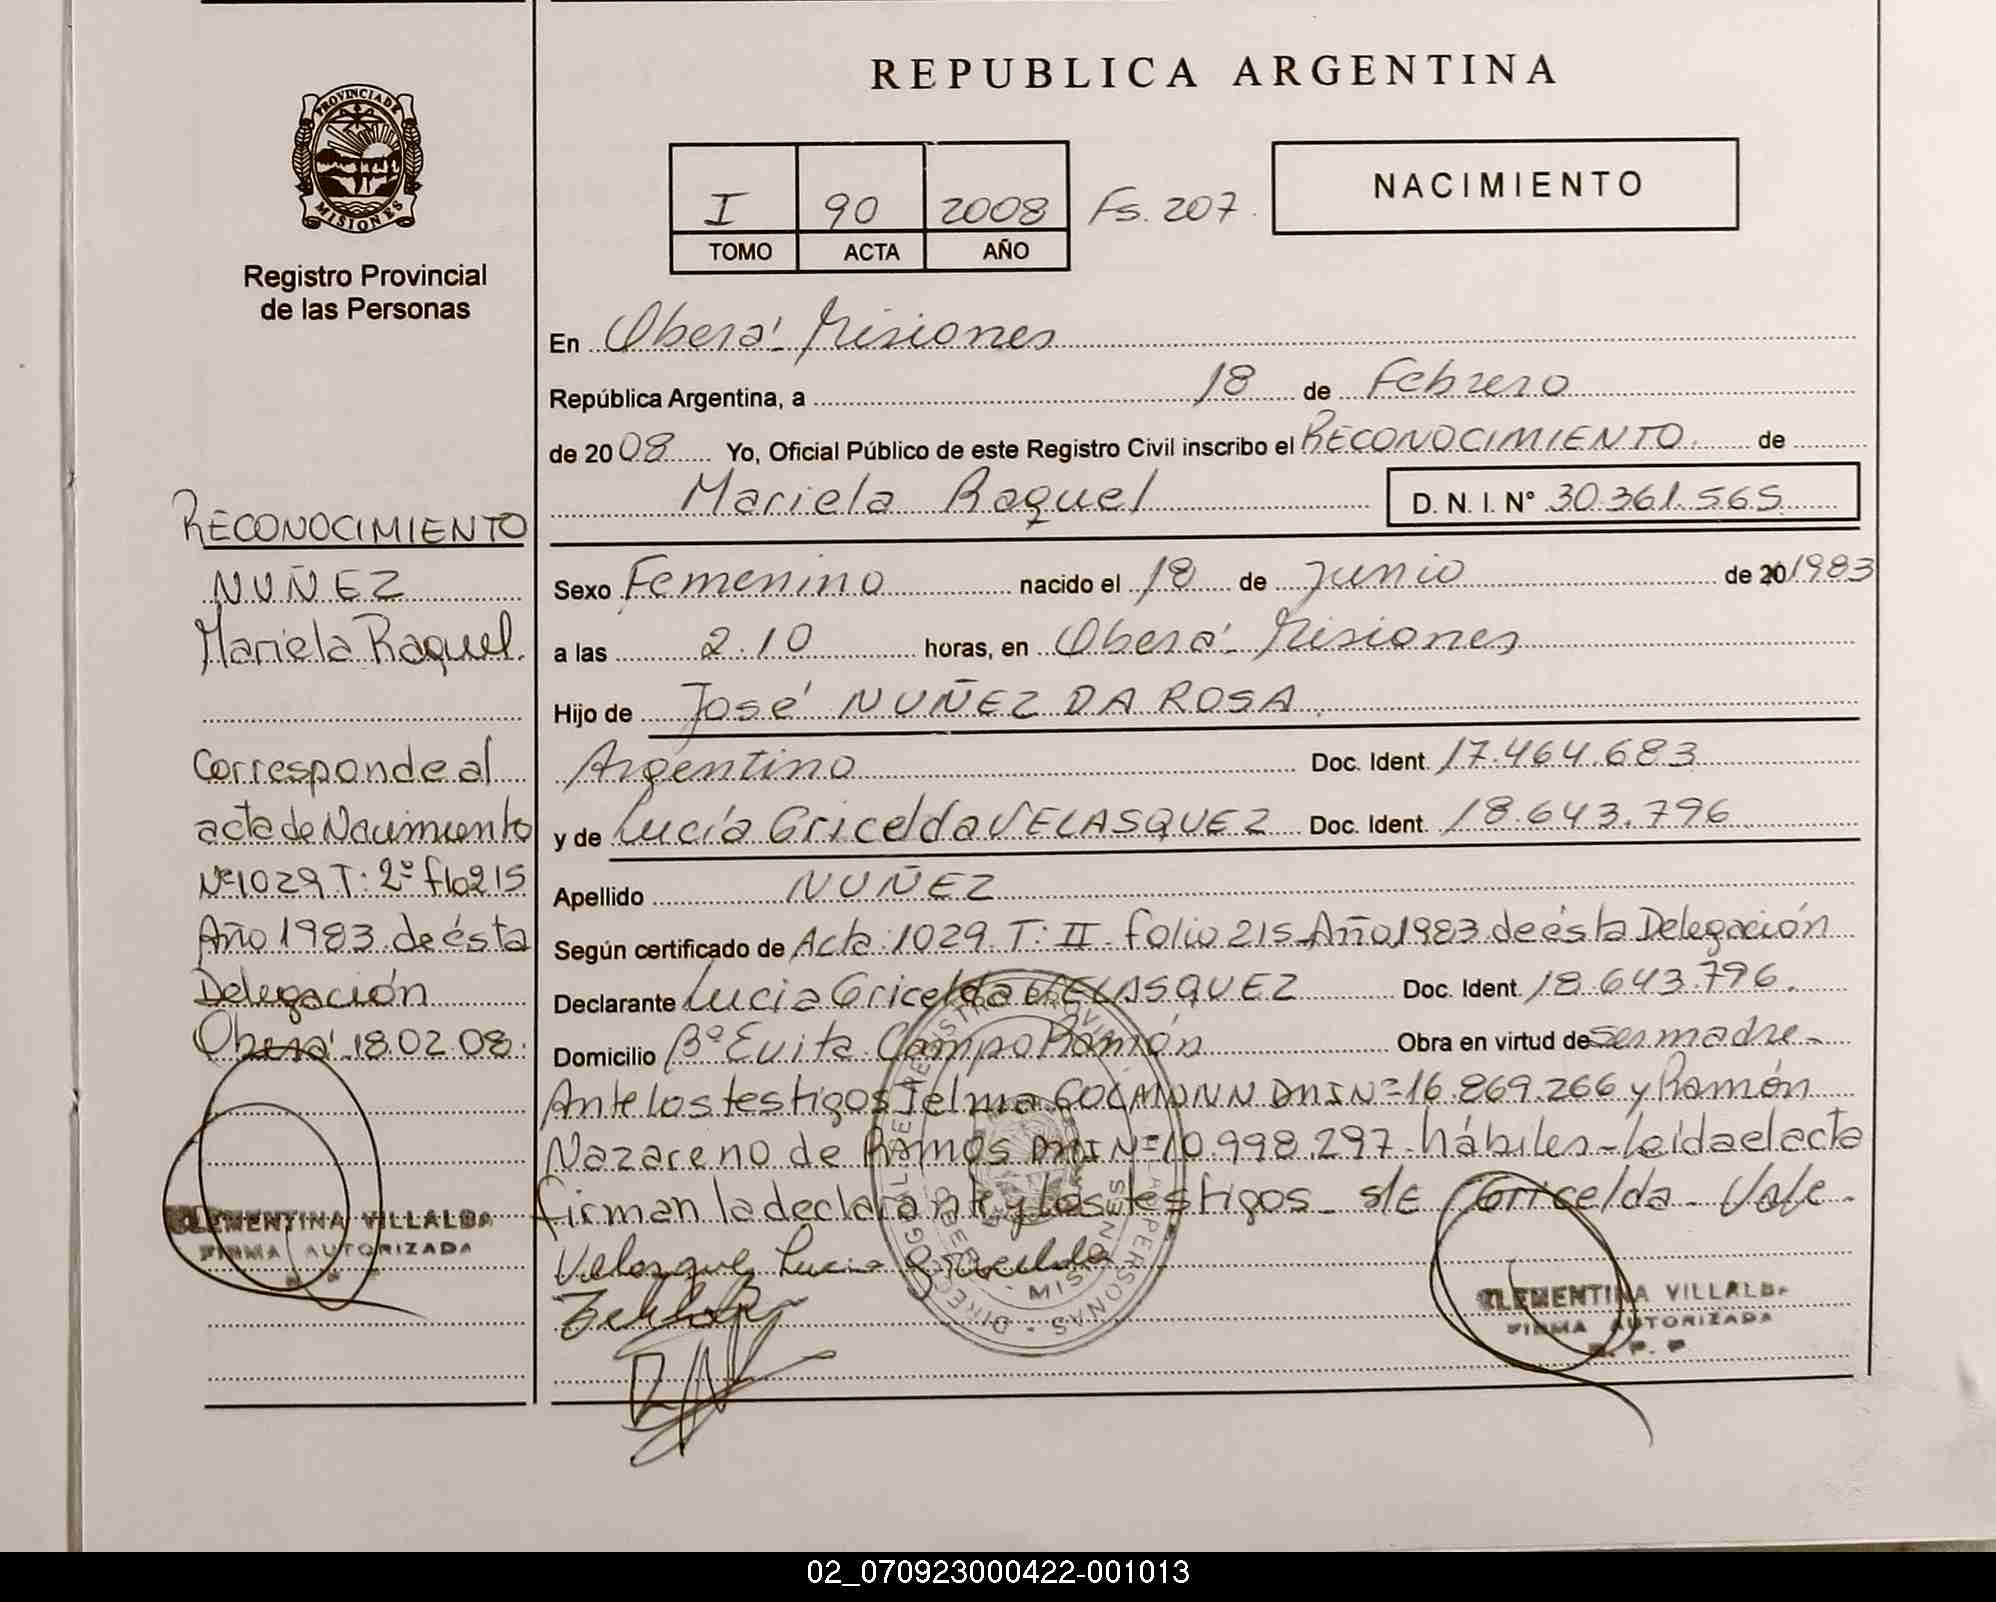 PROVINCIA DE
MISIONES
Registro Provincial
de las Personas
RECONOCIMIENTO
NUÑEZ
Mariela Raquel.
Corresponde al
acta de Nacimiento
Nº 1029 T: 2º flo 215
Año 1983 de ésta
Delegación
Oberá 18.02.08.
CLEMENTINA VILLALBA
FIRMA AUTORIZADA
REPUBLICA ARGENTINA
I 90 2008 Fs. 207.
TOMO ACTA AÑO
NACIMIENTO
En Oberá - Misiones
República Argentina, a 18 de Febrero
de 2008 Yo, Oficial Público de este Registro Civil inscribo el RECONOCIMIENTO. de
Mariela Raquel D. N. I. N° 30.361.565
Sexo Femenino nacido el 18 de Junio de 20 1983
a las 2.10 horas, en Oberá - Misiones
Hijo de José NUÑEZ DA ROSA.
Argentino Doc. Ident. 17.464.683
y de Lucía Gricelda VELASQUEZ Doc. Ident. 18.643.796
Apellido NUÑEZ
Según certificado de Acta: 1029. T: II. folio 215 - Año 1983 de ésta Delegación
Declarante Lucia Gricelda VELASQUEZ Doc. Ident. 18.643.796.
Domicilio Bº Evita. Campo Ramón Obra en virtud de ser madre -
Ante los testigos Telma DNI Nº 16.869.266 y Ramón
Nazareno de Ramos DNI Nº 10.998.297 - hábiles - leida el acta
firman la declarante y los testigos - s/E Gricelda - Vale -
Velasquez Lucia Gricelda
CLEMENTINA VILLALBA
FIRMA AUTORIZADA
R. P. P
02_070923000422-001013